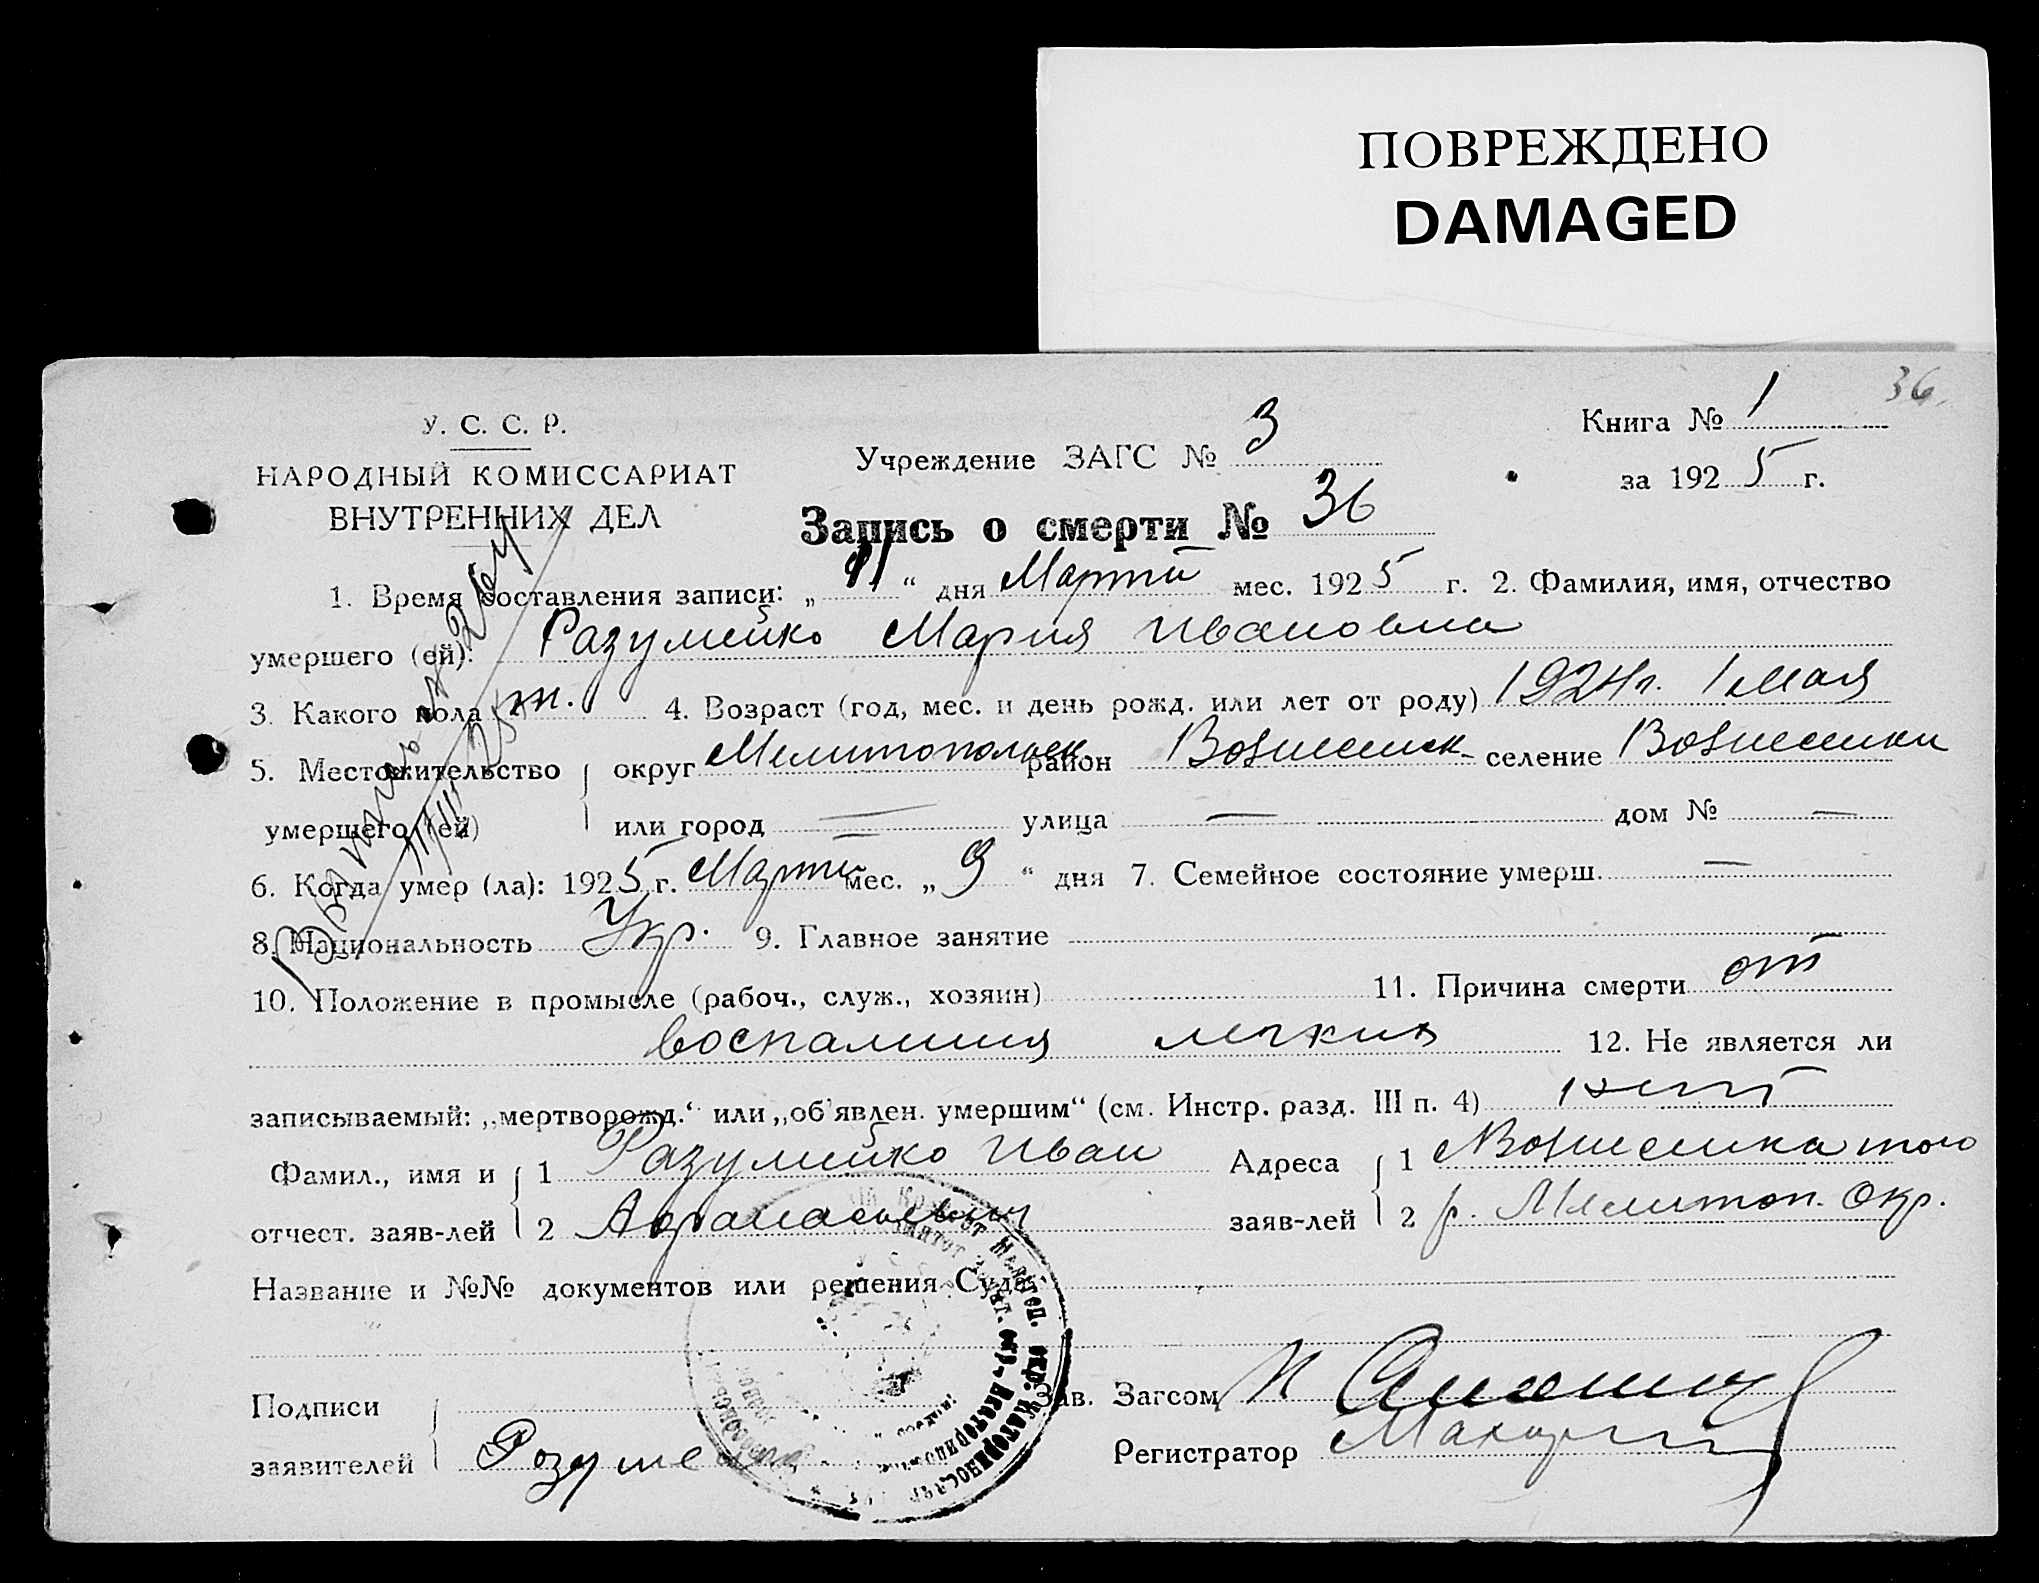 ПОВРЕЖДЕНО
DAMAGED
36.
У. С. С. Р.
НАРОДНЫЙ КОМИССАРИАТ
ВНУТРЕННИХ ДЕЛ
Учреждение ЗАГС № 3
Книга № 1
за 1925 г.
Запись о смерти № 36
1. Время составления записи: „11“ дня Марта мес. 1925 г. 2. Фамилия, имя, отчество
умершего (ей): Разумейко Мария Ивановна
3. Какого пола ж. 4. Возраст (год, мес. и день рожд. или лет от роду) 1924г. 1 мая
5. Местожительство округ Мелитопольск. район Вознесенск- селение Вознесенки
умершего (ей) или город — улица — дом № —
6. Когда умер (ла): 1925 г. Марта мес. „9“ дня 7. Семейное состояние умерш. —
8. Национальность Укр. 9. Главное занятие
10. Положение в промысле (рабоч., служ., хозяин) 11. Причина смерти от
воспаления легких 12. Не является ли
записываемый: „мертворожд.“ или „об'явлен. умершим“ (см. Инстр. разд. III п. 4) нет
Фамил., имя и 1 Разумейко Иван Адреса 1 Вознесенка того
отчест. заяв-лей 2 Афанасьевич заяв-лей 2 р. Мелитоп. Окр.
Название и №№ документов или решения Суда
Подписи Зав. Загсом
заявителей Розуме Регистратор